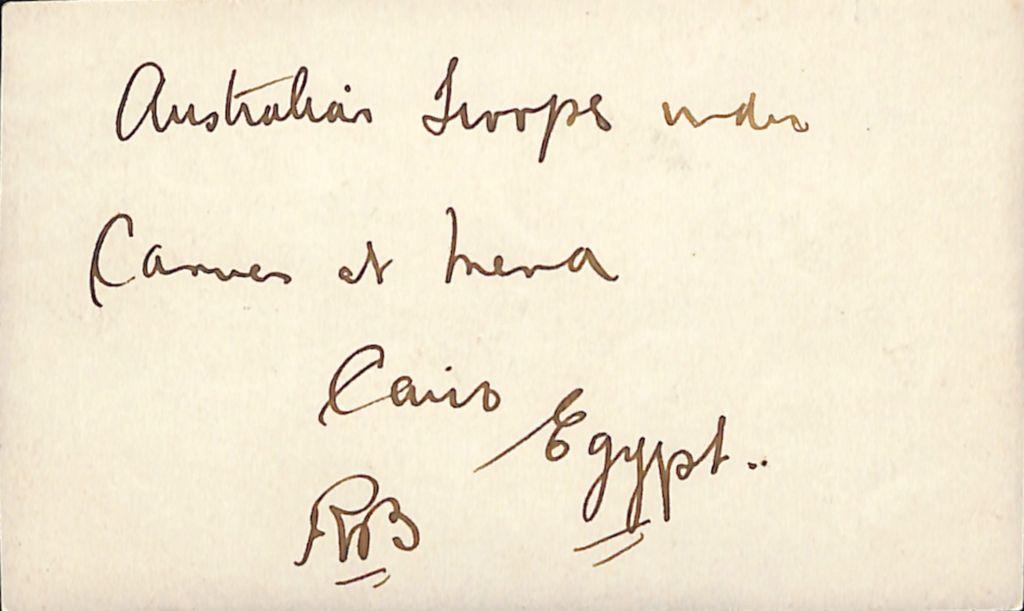 Australian Troops under
Canvas at Mena
Cairo
Egypt..